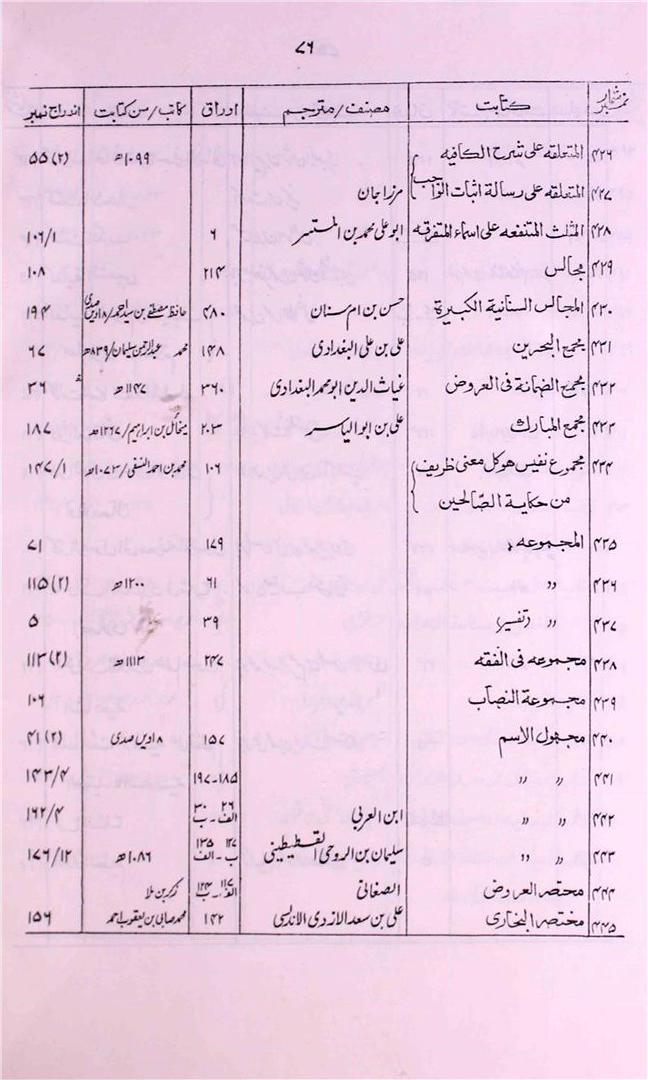 ۷۶
نمبر شمار کتابت مصنف/مترجم اوراق کاتب/سن کتابت اندراج نمبر
۴۲۶ المتعلقه علی شرح الکافیه ۱۰۹۹ھ ۵۵(۲)
۴۲۷ المتعلقه علی رسالة اثبات الواجب مرزا جان
۴۲۸ المثلث المتفعه علی اسماء المتفرقه ابو علی محمد بن المستنیر ۶ ۱۰۶/۱
۴۲۹ مجالس ۲۱۴ ۱۰۸
۴۳۰ المجالس السنانیة الکبیرة حسن بن ام سنان ۴۸۰ حافظ مصطفے بن سید احمد/۱۸ویں صدی ۱۹۴
۴۳۱ مجمع البحرین علی بن علی البغدادی ۱۴۸ محمد عبدالرحمن سلیمان/۸۳۹ھ ۶۷
۴۳۲ مجمع الضمانة فی العروض غیاث الدین ابو محمد البغدادی ۳۶۰ ۱۱۴۷ھ ۳۶
۴۳۳ مجمع المبارك علی بن ابو الیاسر ۲۰۳ میخائل بن ابراهیم/۱۲۶۷ھ ۱۸۷
۴۳۴ مجموع نفیس هو کل معنی ظریف ۱۰۶ محمد بن احمد النسفی/۱۰۷۳ھ ۱۴۷/۱
من حکایة الصّالحین
۴۳۵ المجموعه ۱۷۹ ۷۱
۴۳۶ 〃 ۶۱ ۱۲۰۰ھ ۱۱۵(۲)
۴۳۷ 〃 تفسیر ۳۹ ۵
۴۳۸ مجموعه فی الفقه ۲۴۷ ۱۱۱۳ھ ۱۱۳(۲)
۴۳۹ مجموعة النصاب ۱۰۶
۴۴۰ مجهول الاسم ۱۵۷ ۱۸ویں صدی ۴۱(۲)
۴۴۱ 〃 〃 ۱۸۵-۱۹۷ ۱۴۳/۴
۴۴۲ 〃 〃 ابن العربی ۲۶ الف - ۳۰ ب ۱۶۲/۴
۴۴۳ 〃 〃 سلیمان بن الروحی القسطیطینی ۱۲۷ ب - ۱۳۵ الف ۱۰۸۶ھ ۱۷۶/۱۲
۴۴۴ مختصر العروض الصغانی زکر بن ملا
۴۴۵ مختصر البخاری علی بن سعد الازدی الاندلسی ۱۴۲ محمد صابی بن یعقوب احمد ۱۵۶